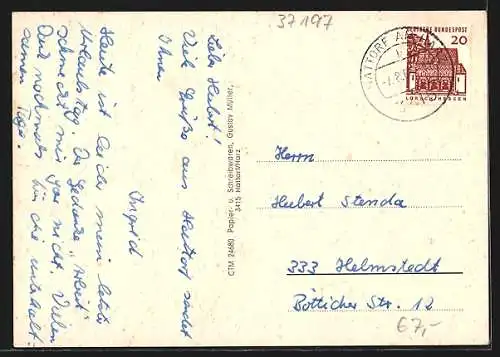 37197
HATTORF AM
DEUTSCHE BUNDESPOST
20
LORSCH/HESSEN
Lieb Hubert!
Viel Grüße aus Hattorf sendet
Ihnen
Ingrid
Heute ist leider mein letzter
Urlaubstag. Der Gedanke "Arbeit"
schmeckt mir gar nicht. Vielen
Dank nochmals für die
schönen Tage.
CTM 24680 Papier- u. Schreibwaren, Gustav Müller,
3415 Hattorf/Harz
Herrn
Hubert Stenda
333 Helmstedt
Bötticher Str. 12
67,-